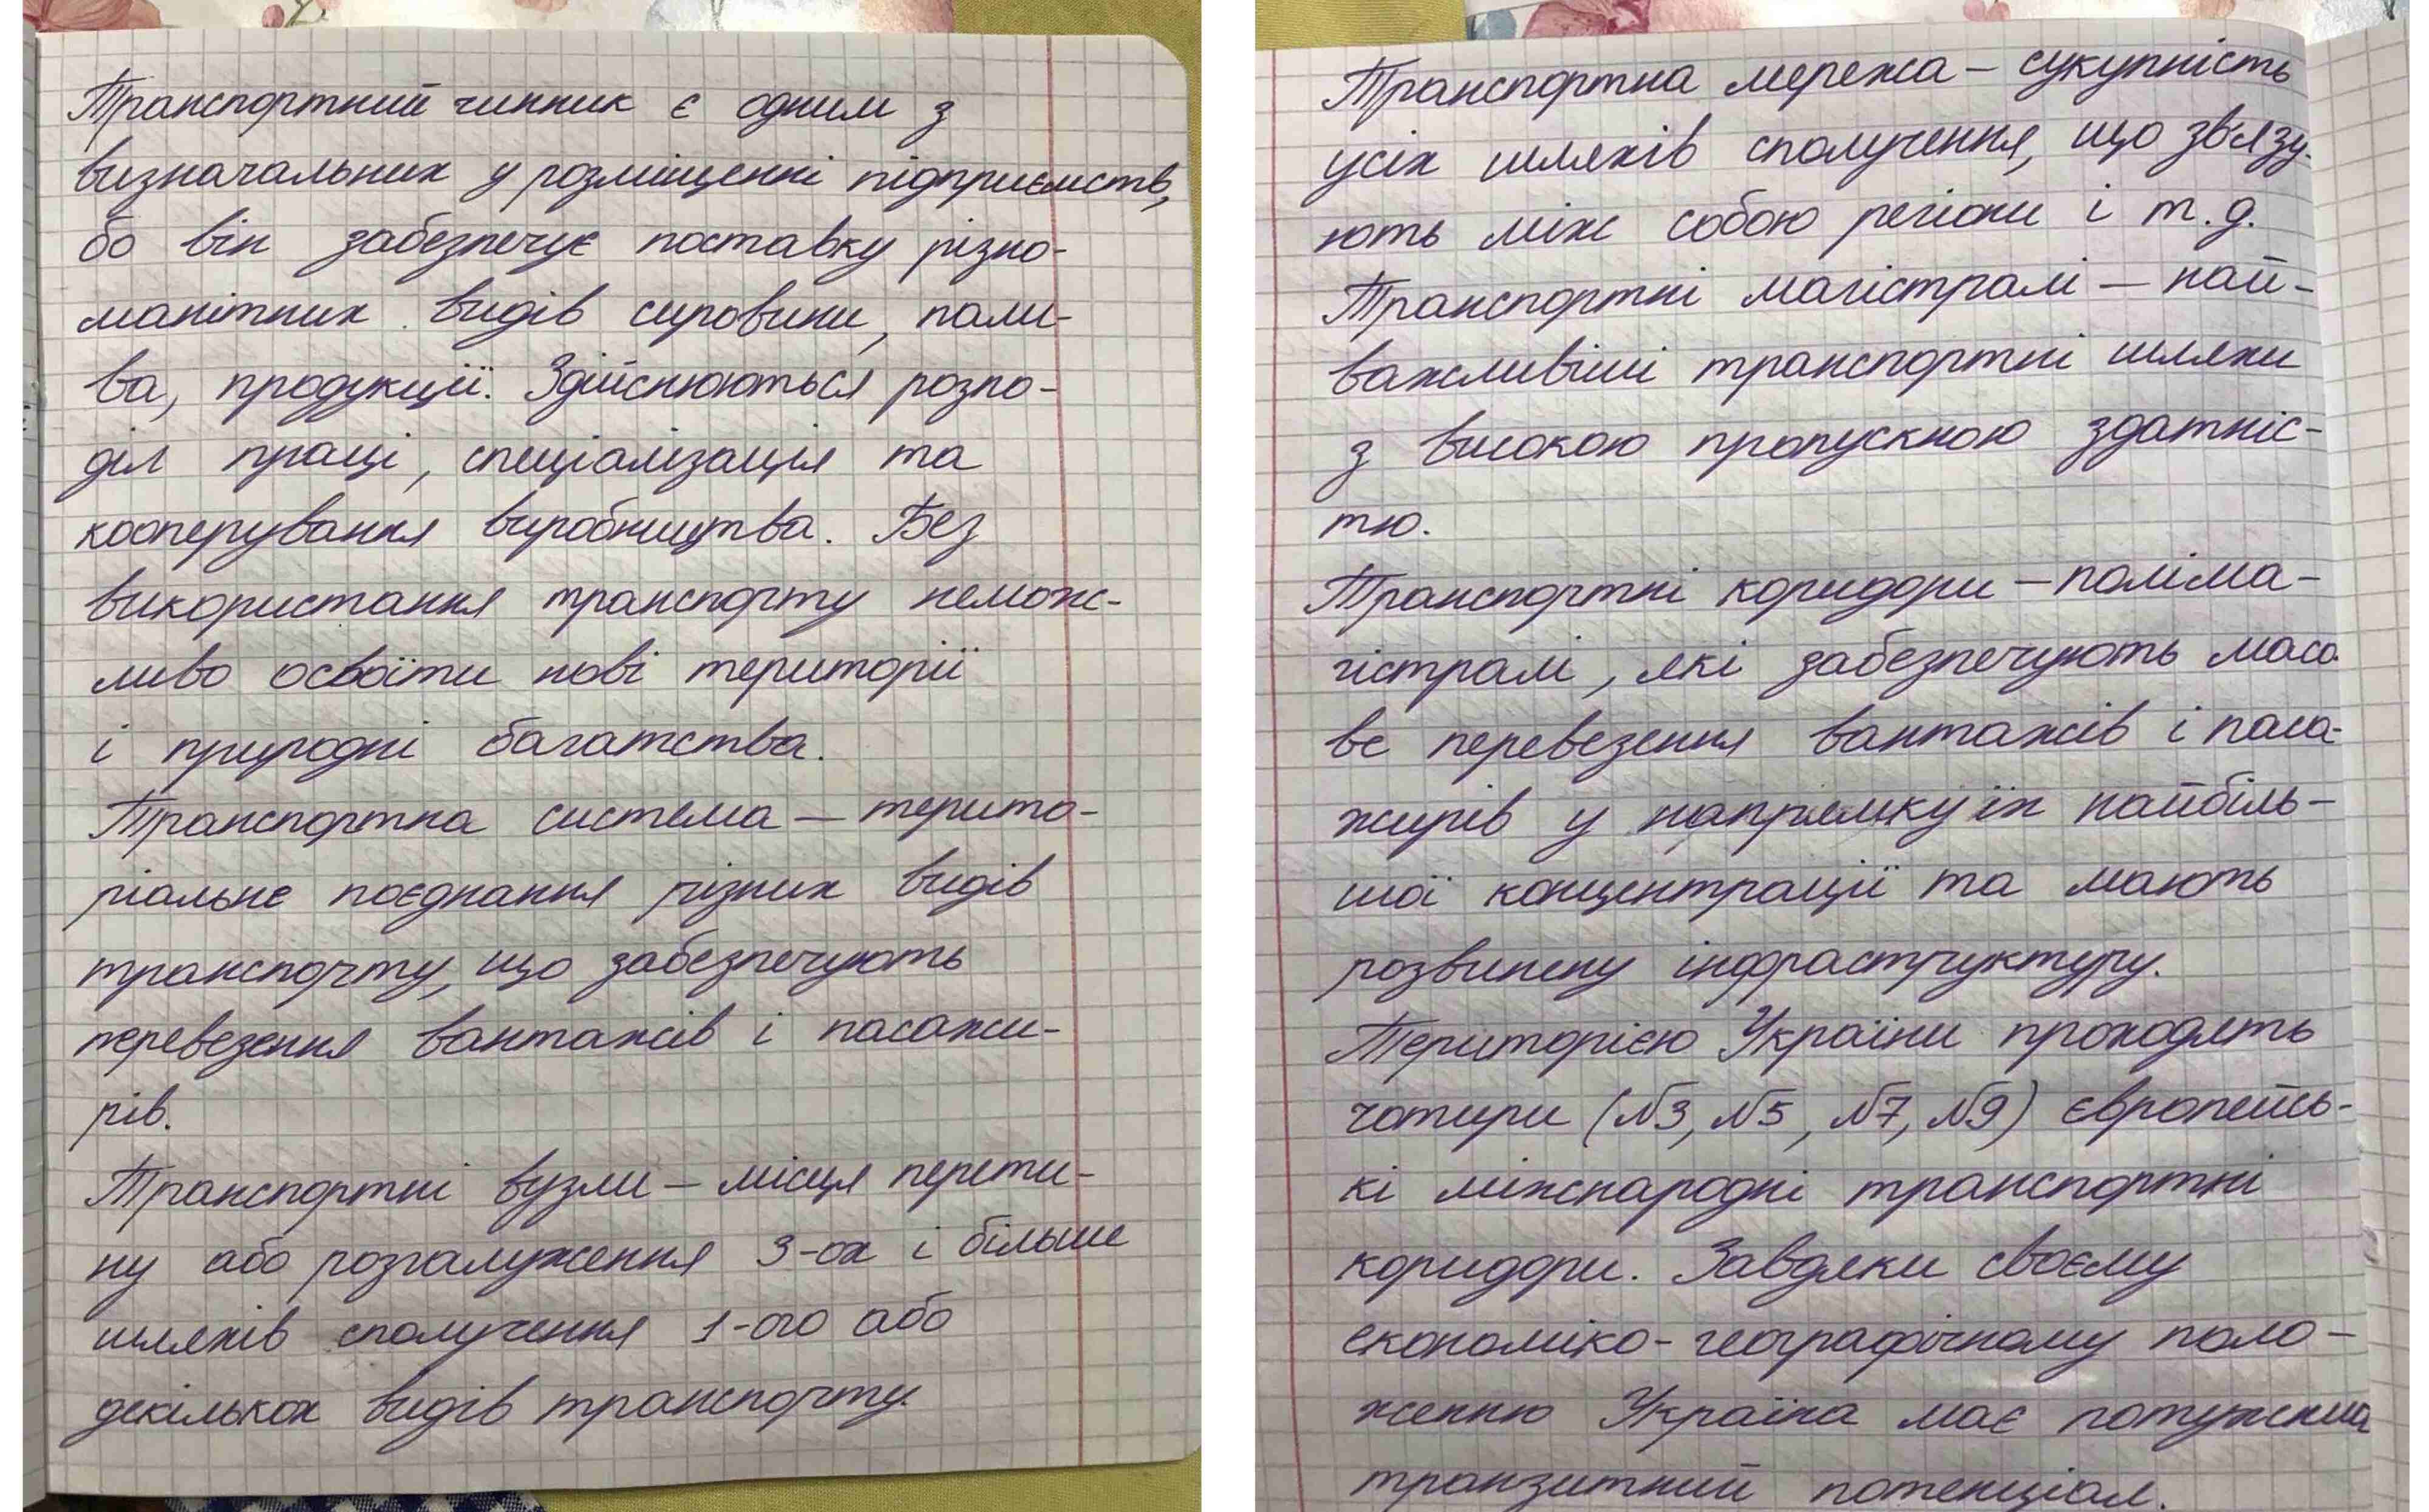 Транспортний чинник є одним з
визначальних у розміщенні підприємств,
бо він забезпечує поставку різно-
манітних видів сировини, пали-
ва, продукції. Здійснюються розпо-
діл праці, спеціалізація та
кооперування виробництва. Без
використання транспорту немож-
ливо освоїти нові території
і природні багатства.
Транспортна система — терито-
ріальне поєднання різних видів
транспорту, що забезпечують
перевезення вантажів і пасажи-
рів.
Транспортні вузли — місця перети-
ну або розгалуження 3-ох і більше
шляхів сполучення 1-ого або
декількох видів транспорту.
Транспортна мережа — сукупність
усіх шляхів сполучення, що зв'язу-
ють між собою регіони і т.д.
Транспортні магістралі — най-
важливіші транспортні шляхи
з високою пропускною здатніс-
тю.
Транспортні коридори — поліма-
гістралі, які забезпечують масо-
ве перевезення вантажів і паса-
жирів у напрямку їх найбіль-
шої концентрації та мають
розвинену інфраструктуру.
Територією України проходять
чотири (№3, №5, №7, №9) європейсь-
кі міжнародні транспортні
коридори. Завдяки своєму
економіко-географічному поло-
женню Україна має
транзитний потенціал.